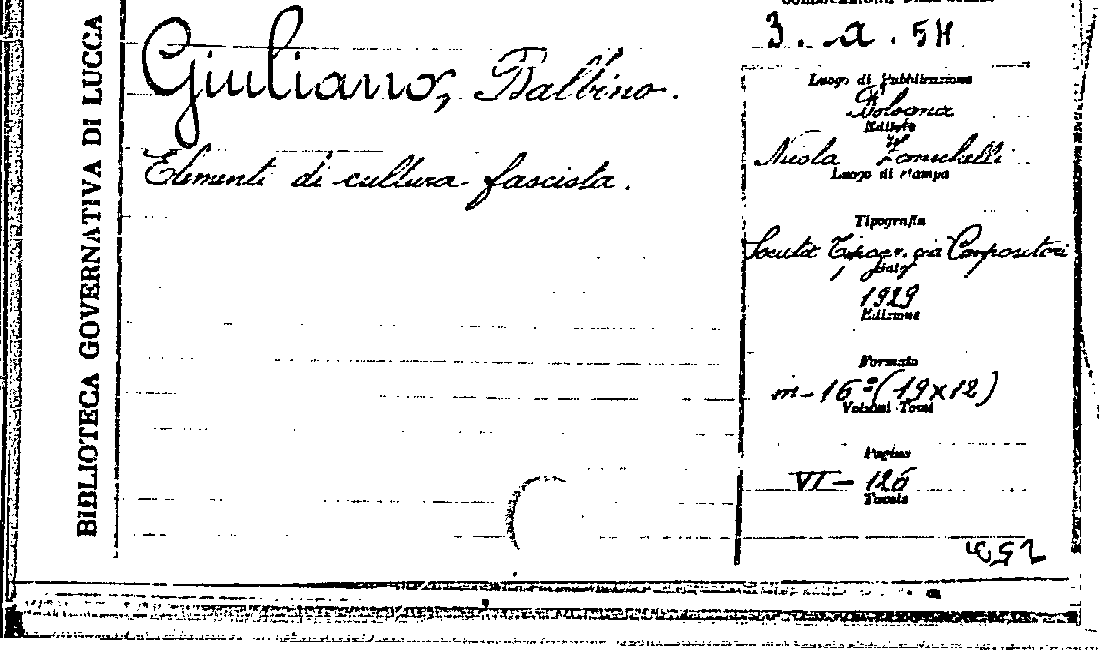 BIBLIOTECA GOVERNATIVA DI LUCCA
Giuliano, Balbino.
Elementi di cultura fascista.
3. a. 54
Luogo di Pubblicazione
Bologna
Editore
Nicola Zanichelli
Luogo di stampa
Tipografia
Società Tipogr. già Compositori
1929
Edizione
Formato
in-16º (19x12)
Volumi Totali
Pagine
VI - 126
Tavole